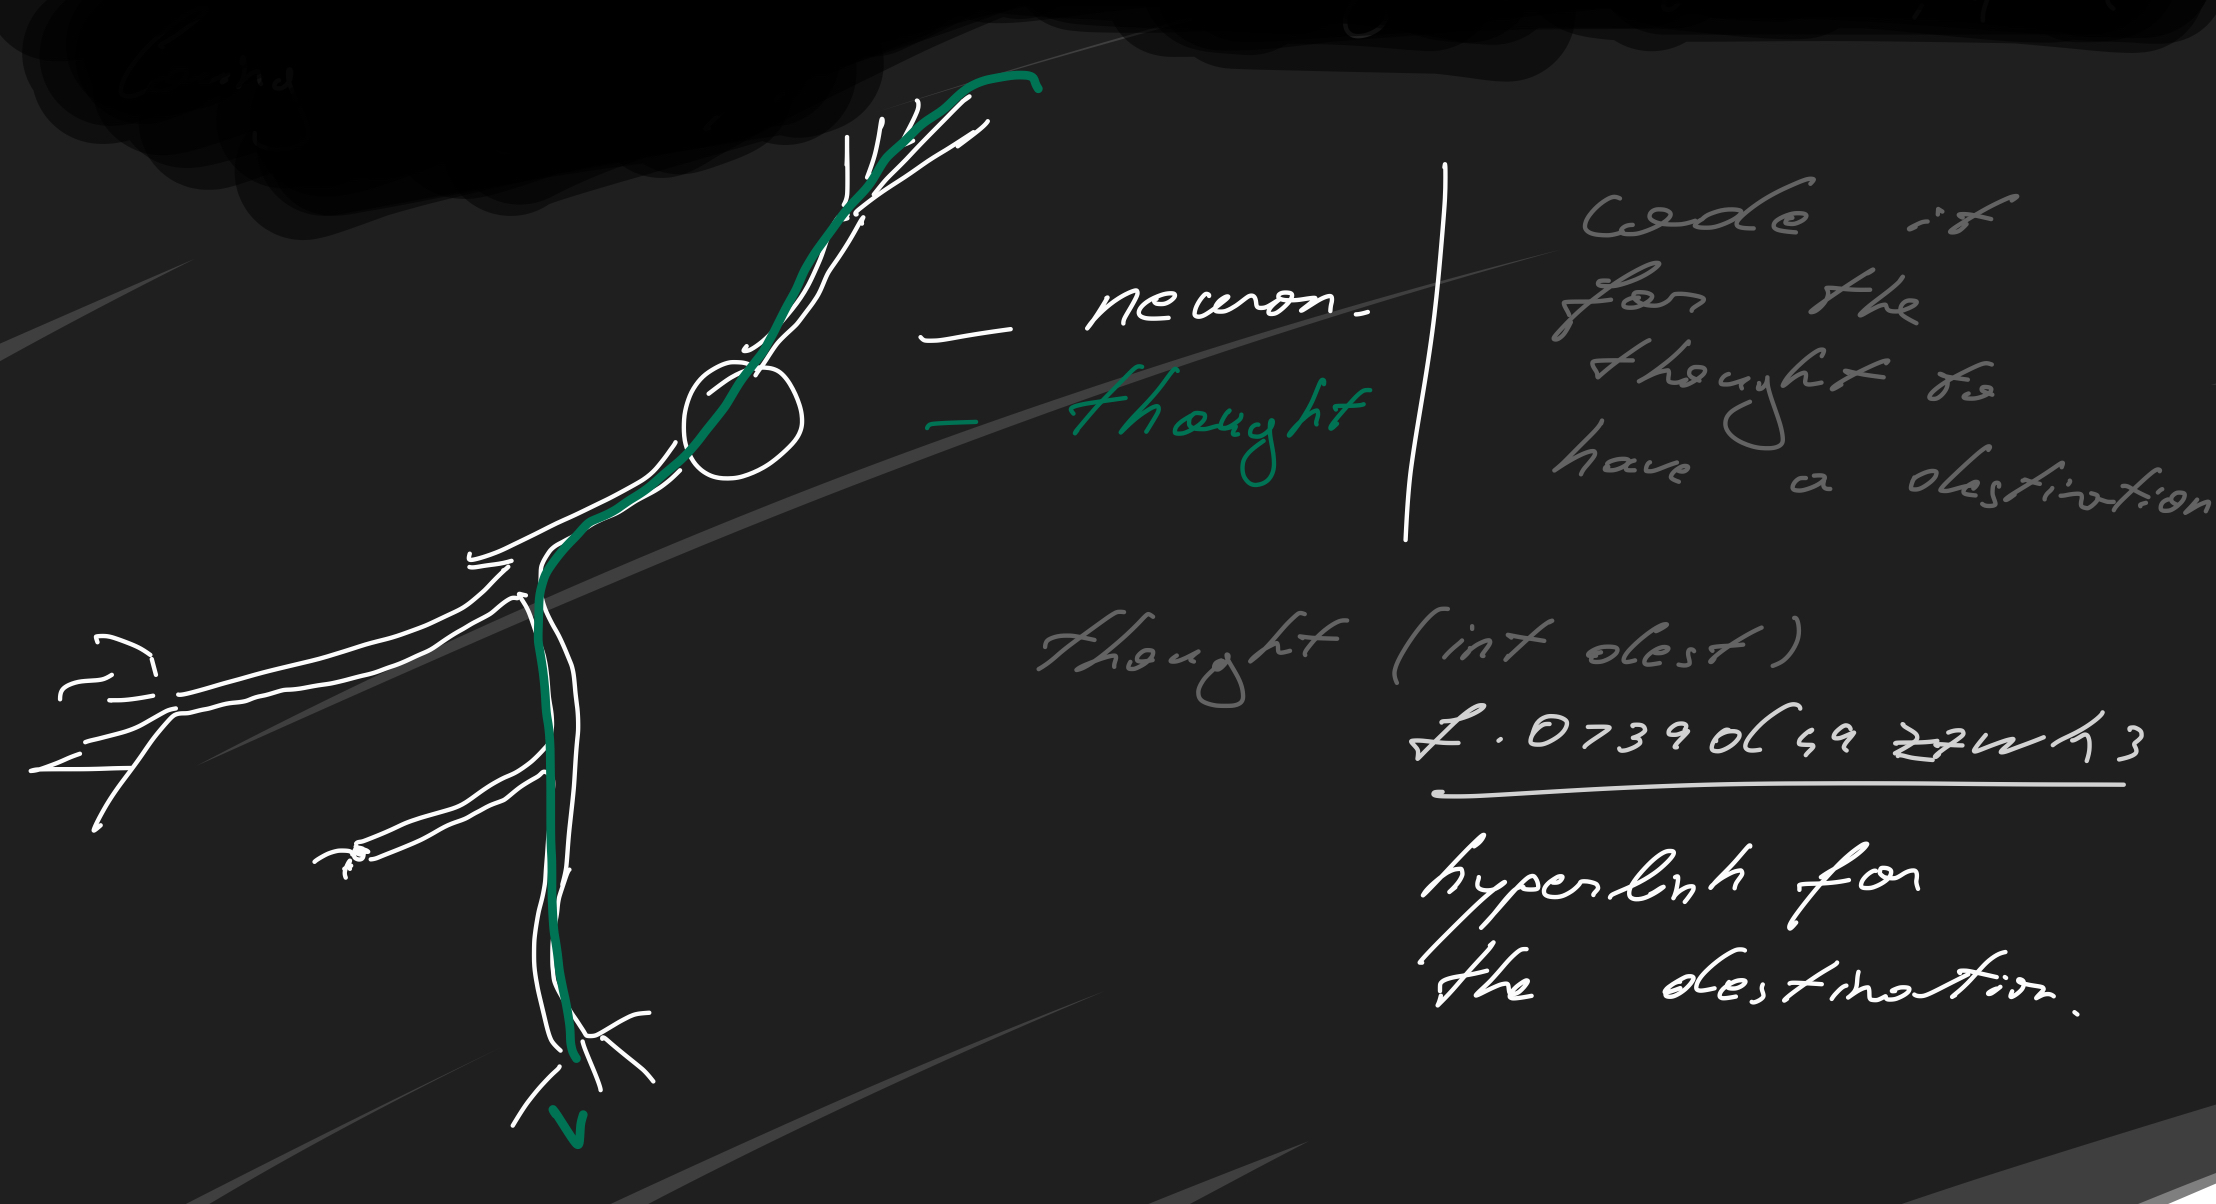 — neuron.
— thought
Code it
for the
thought to
have a destination
thought (int dest)
hyperlink for
the destination.